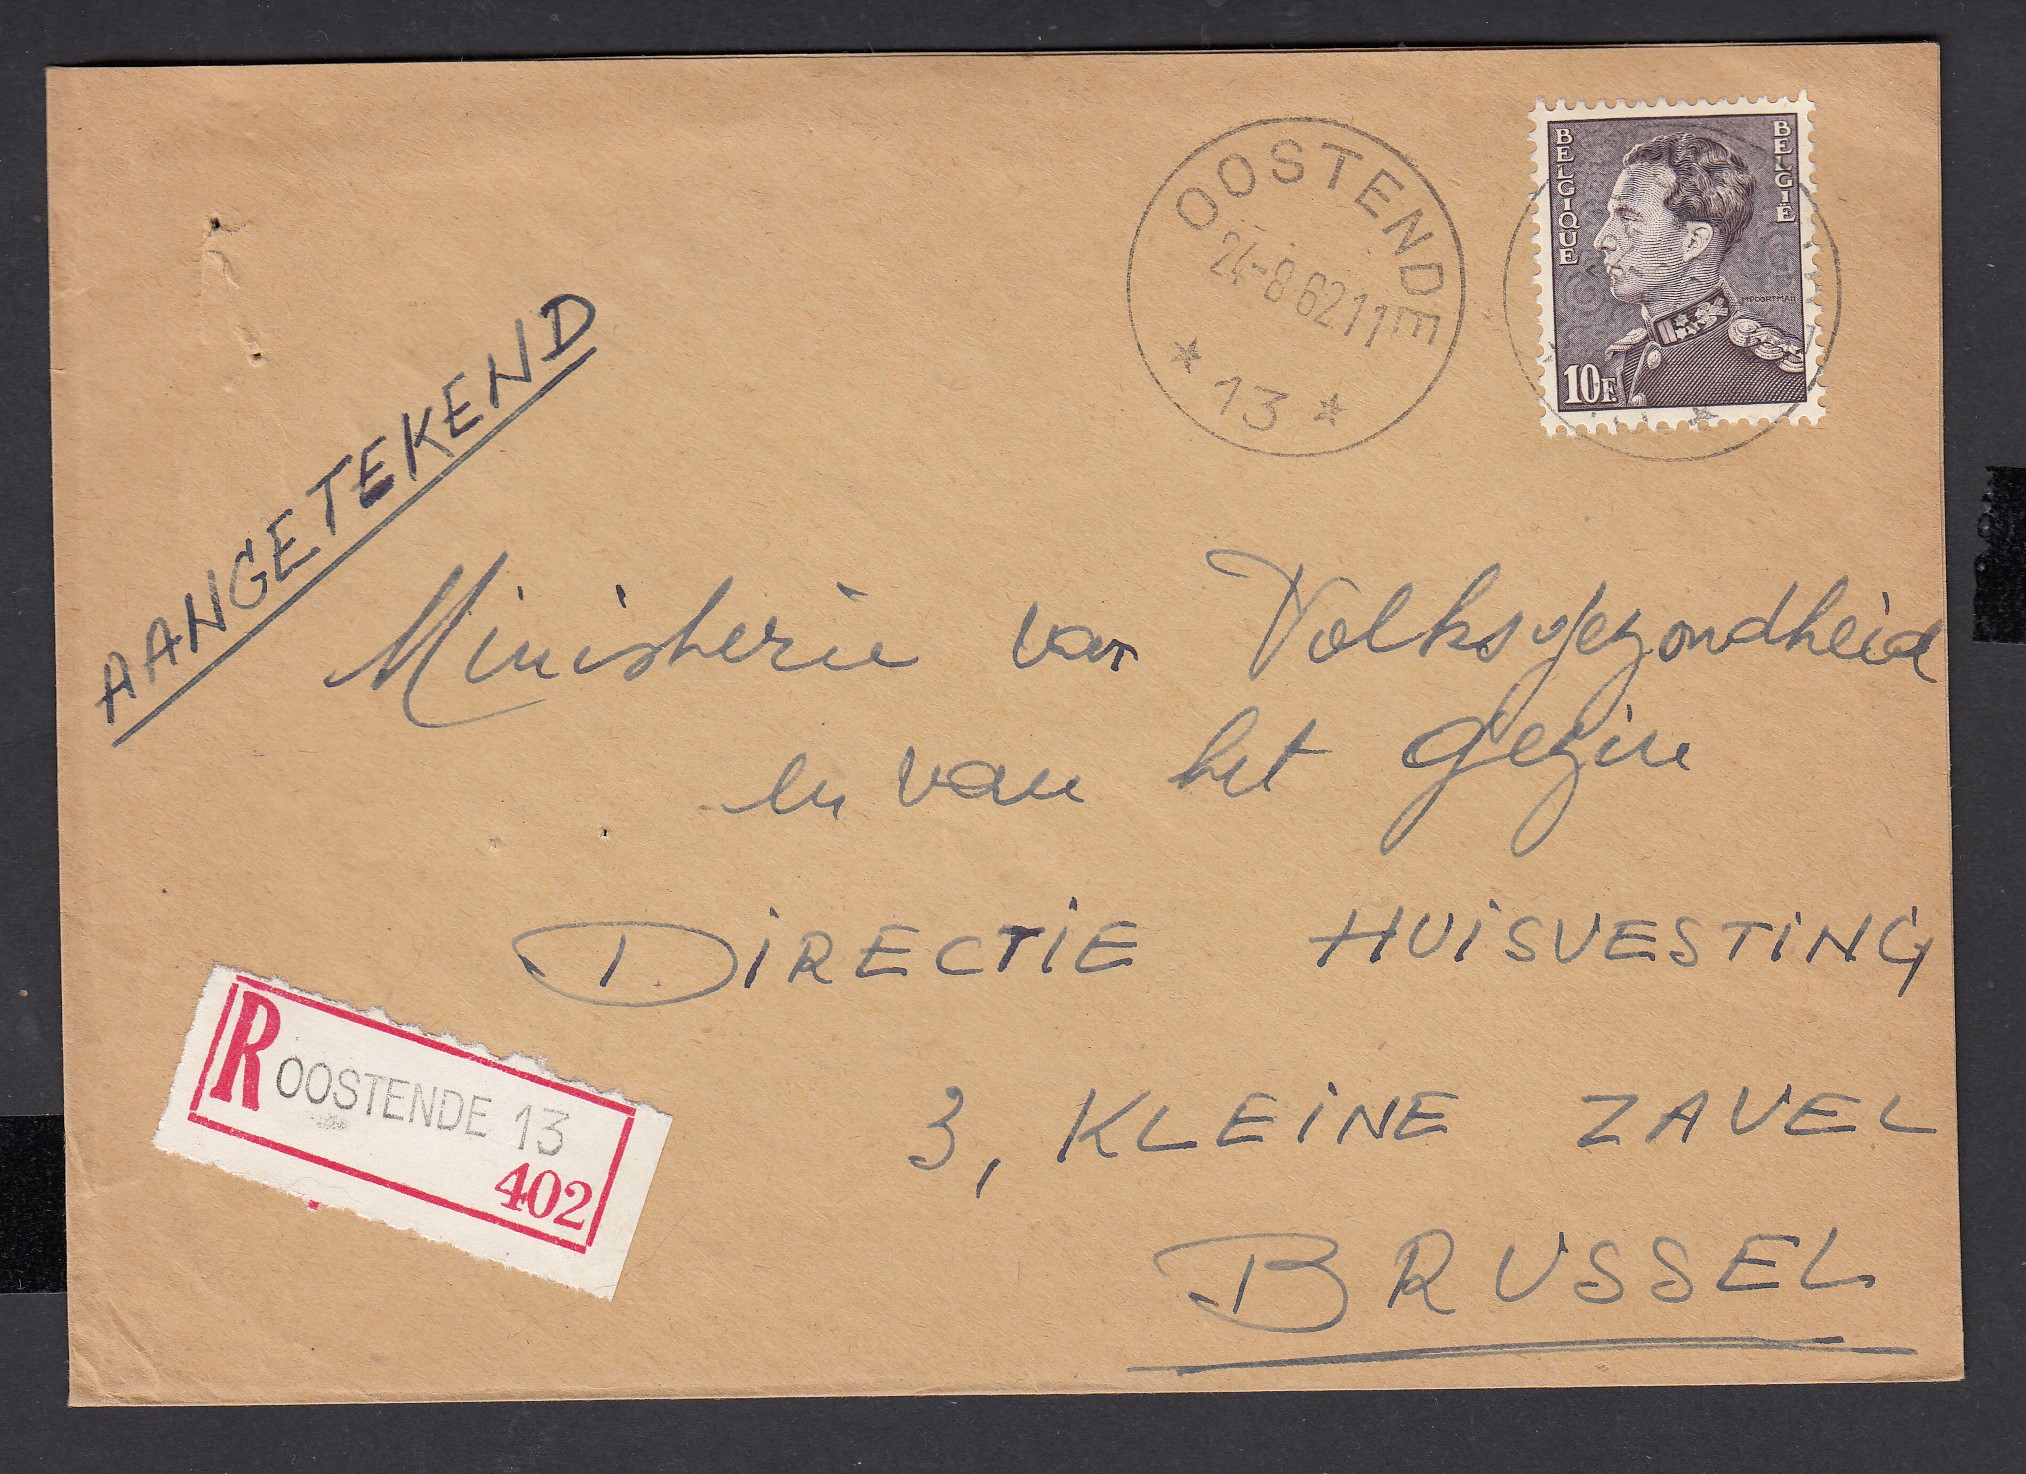 OOSTENDE
24-8 62 11
* 13 *
BELGIQUE
BELGIË
MPOORTMAN
10F.
AANGETEKEND
Ministerie van Volksgezondheid
en van het gezin
DIRECTIE HUISVESTING
R OOSTENDE 13
402
3, KLEINE ZAVEL
BRUSSEL